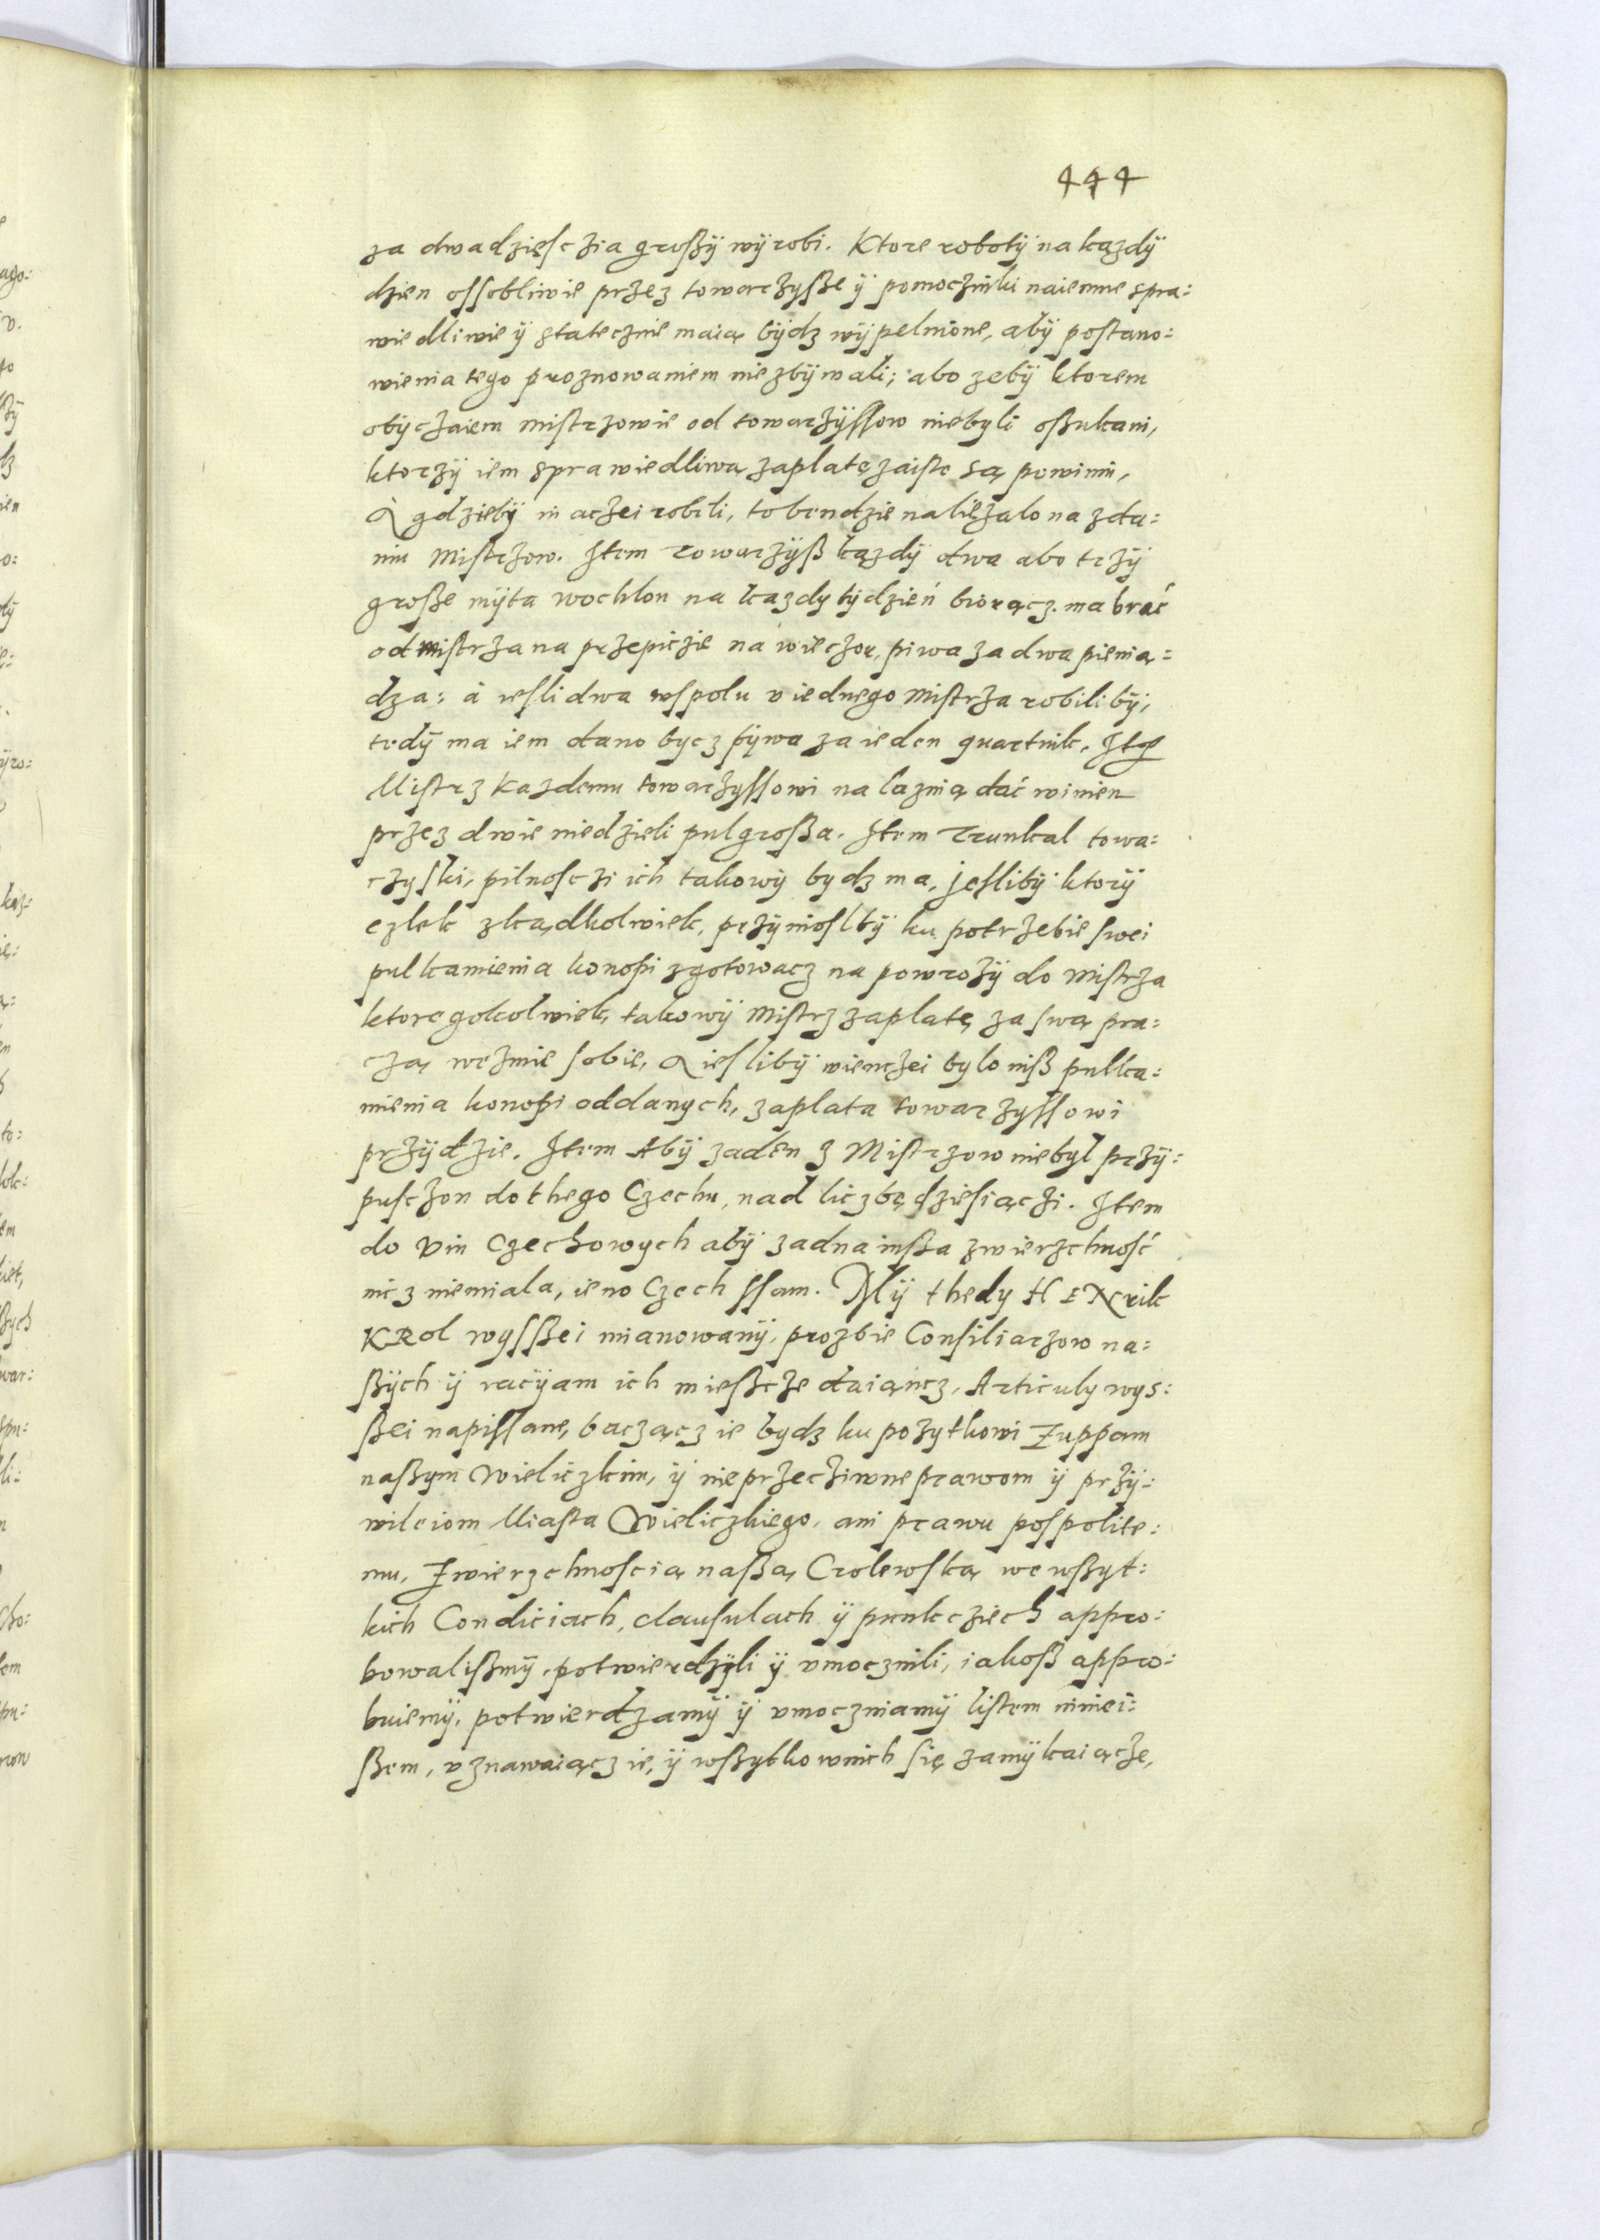 444
za dwadziesczia groszÿ wÿrobi. Ktore robotÿ na kazdÿ
dzien ossobliwie przez towarzysze ÿ pomoczniki naiemne spra:
wiedliwie ÿ statecznie maią bÿdz wÿpelnione, abÿ postano:
wienia tego proznowaniem nie zbÿwali; abo zebÿ ktorem
obÿczaiem mistrzowie od towarzÿssow niebyli oszukani,
ktorzÿ iem sprawiedliwą zaplatę zaiste są powinni,
A gdziebÿ inaczei robili, to bendzie należalo na zda:
niu Mistrzow. Item Towarzÿsz kazdÿ dwa abo trzÿ
grosze mÿta wochlon na kazdy tÿdzień biorącz. ma brać
od mistrza na przepiczie na wieczor, piwa za dwa pienią:
dza: à iesli dwa wspolu v iednego Mistrza robilibÿ,
tedÿ ma iem dano bycz pÿwa za ieden quartnik, Item
Mistrz kazdemu towarzyssowi na laznią dać winien
przez dwie niedzieli pulgrosza. Item Trunkal towa:
rzyski, pilnosczi ich takowÿ bydz ma, jeslibÿ ktorÿ
czlek zkądkolwiek, przÿnioslbÿ ku potrzebie swei
pulkamienia konopi zgotowacz na powrozÿ do Mistrza
ktoregokolwiek, takowÿ Mistrz zaplatę za swą pra:
czą weźmie sobie, A ieslibÿ wienczei bylo nisz pulka:
mienia konopi oddanych, zaplata towarzyssowi
przÿdzie. Item Abÿ zaden z Mistrzow niebyl przÿ:
pusczon do thego Czechu, nad liczbę dziesiączi. Item
do vin Czechowych abÿ zadna insza zwierzchność
nicz niemiala, ieno Czech ssam. Mÿ thedy HENrik
KRol wysszei mianowanÿ, prozbie Consiliarzow na:
szÿch ÿ racÿam ich miesczce daiąncz, Articuly wys:
szei napissane, bacząncz ie bydz ku pozytkowi Zuppam
naszym Wieliczkim, ÿ nieprzecziwne prawom ÿ przÿ:
wileiom Miasta Wieliczkiego, ani prawu pospolite:
mu, Zwierzchnoscią naszą Crolewską we wszyt:
kich Condiciach, clausulach ÿ punkcziech appro:
bowaliszmÿ, potwierdzÿli ÿ vmocznili, iakosz appro:
buiemÿ, potwierdzamÿ ÿ vmoczniamÿ listem niniei:
szem, vznawaiącz ie, ÿ wszytko wnich się zamÿkaiącze,